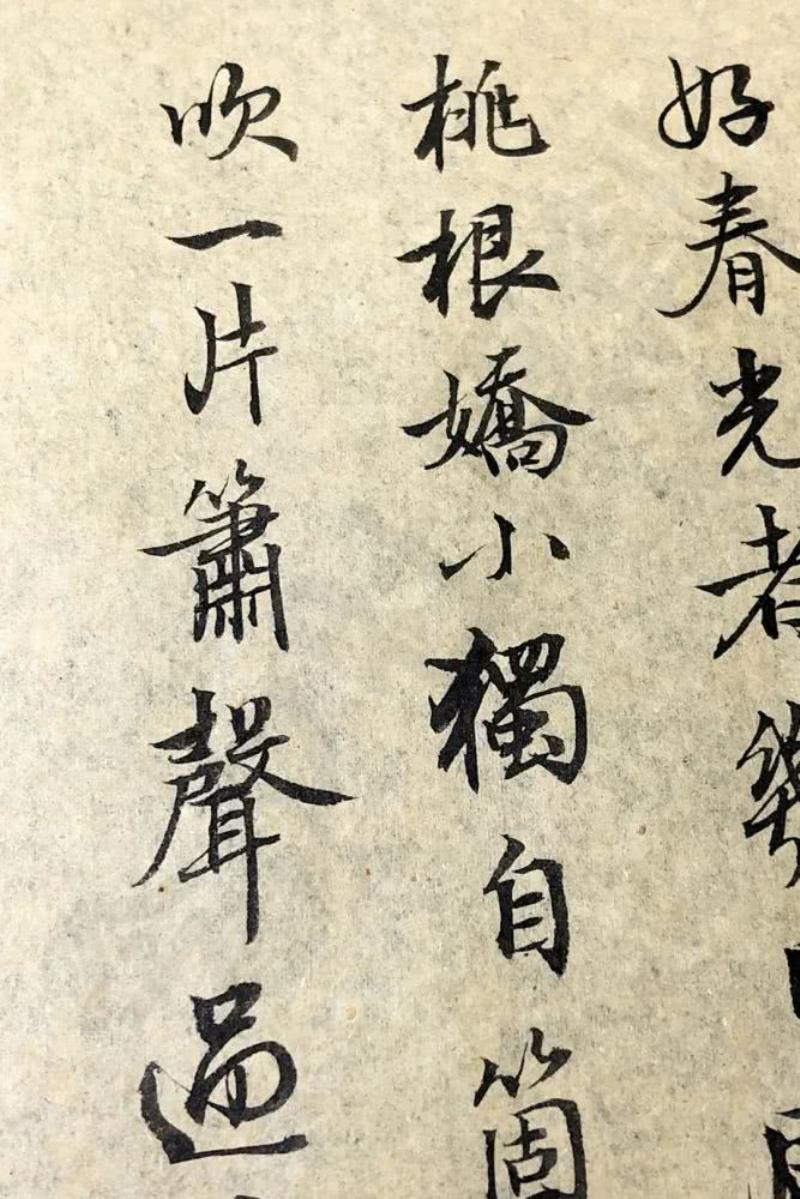 好春光者
桃根嬌小獨自箇
吹一片簫聲過